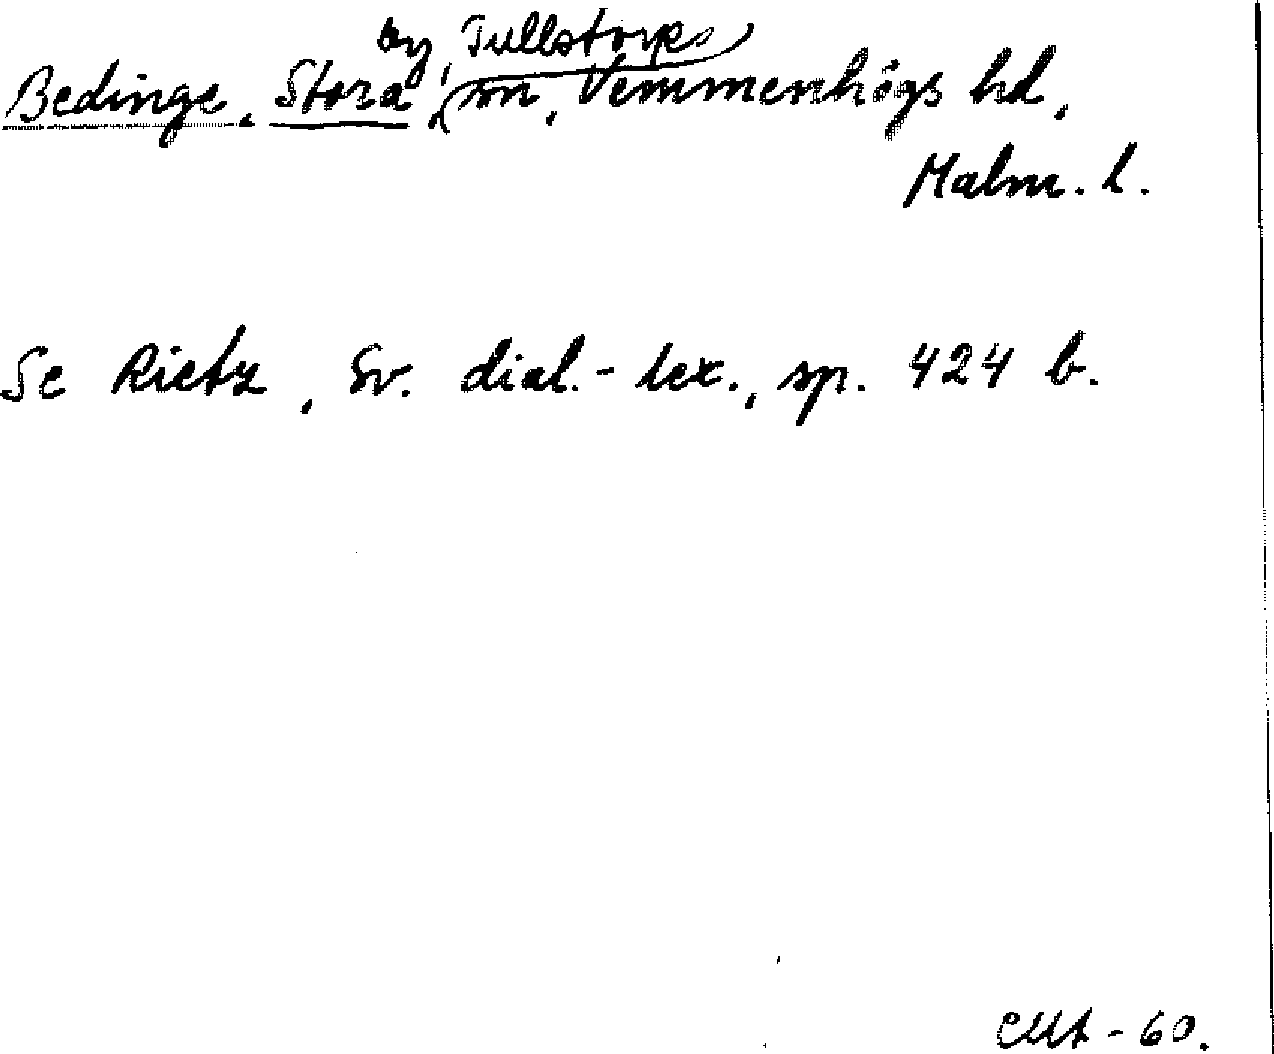 Bedinge, Stora by, Tullstorps sn, Vemmenhögs hd,
Malm. l.
Se Rietz, Sv. dial.-lex., sp. 424 b.
-60.